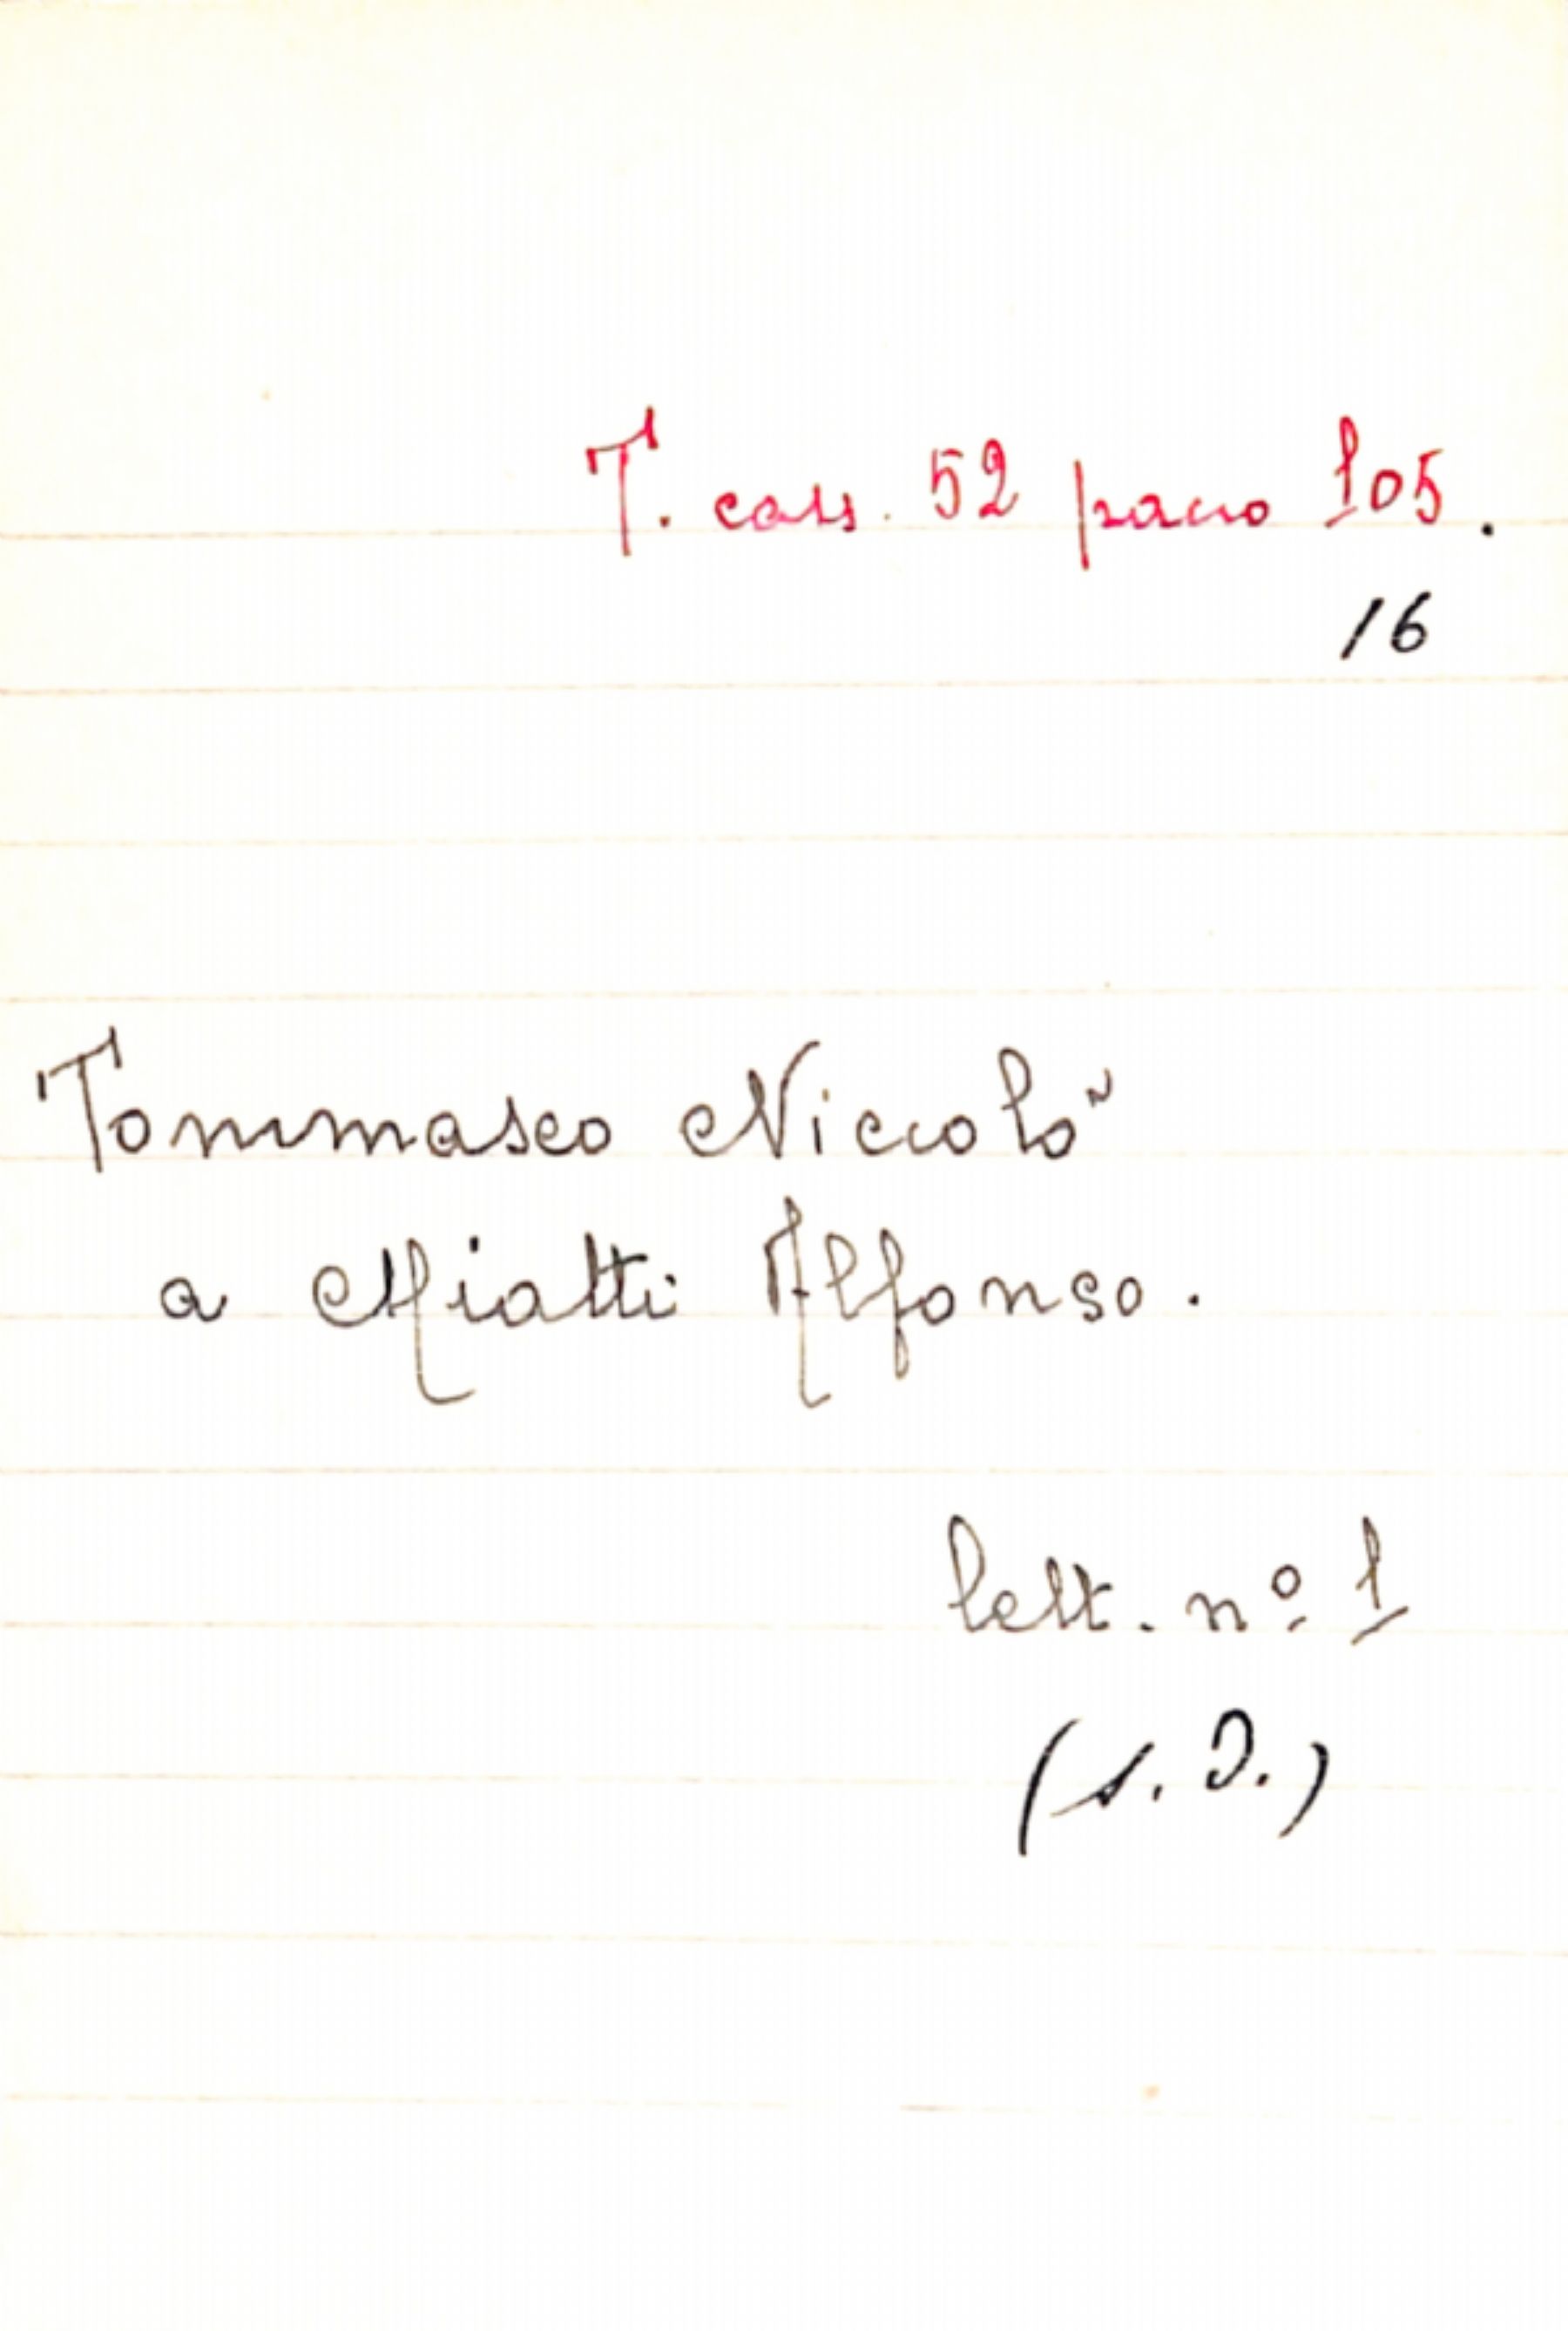 T. cass. 52 pacco 105.
16
Tommaseo Niccolò
a Miatti Alfonso.
lett. nº 1
(s. D.)